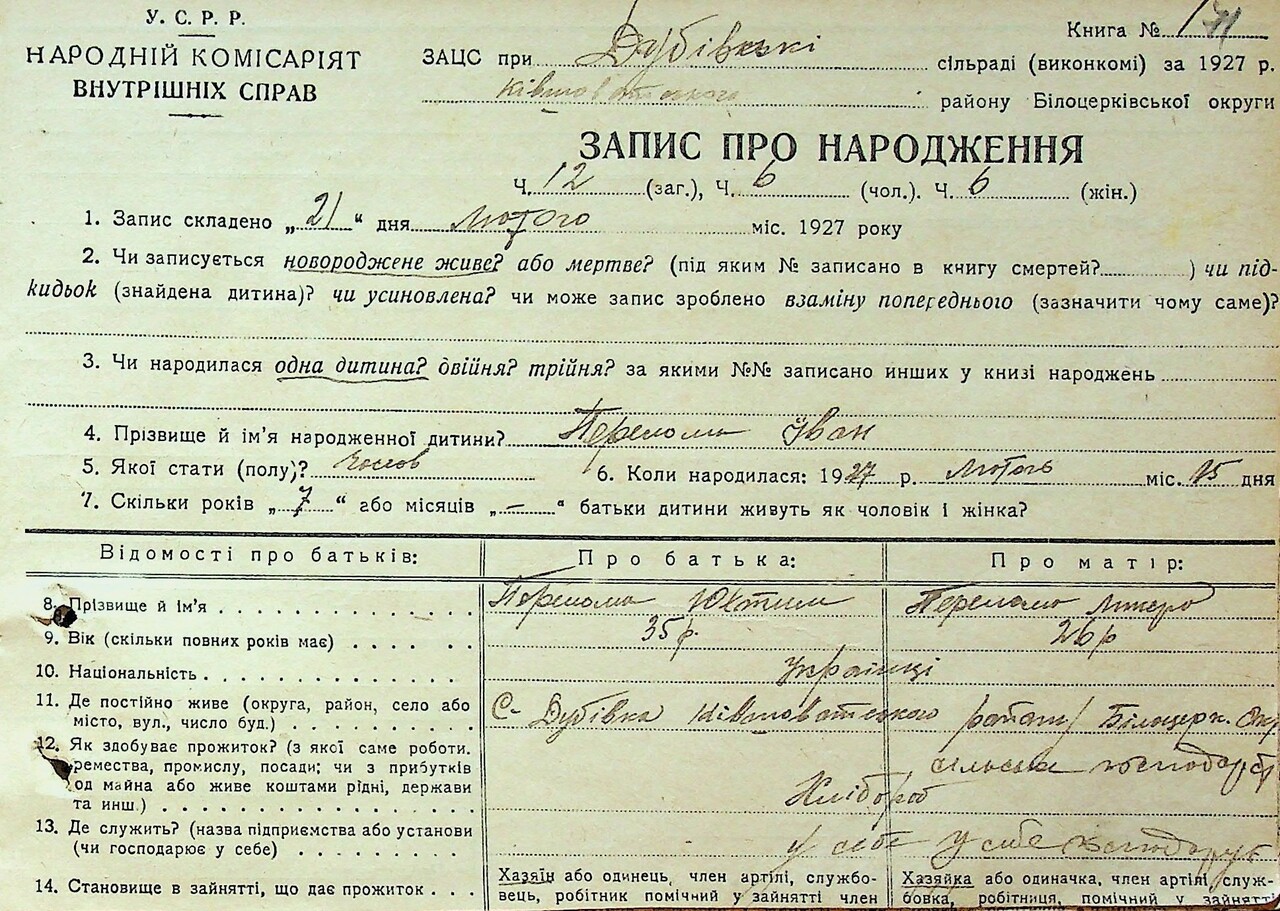 У. С. Р. Р.
НАРОДНІЙ КОМІСАРІЯТ
ВНУТРІШНІХ СПРАВ
Книга № 1
ЗАЦС при Дубівські сільраді (виконкомі) за 1927 р.
Ківшоватського району Білоцерківської округи
ЗАПИС ПРО НАРОДЖЕННЯ
Ч. 12 (заг.), Ч. 6 (чол.). Ч. 6 (жін.)
1. Запис складено „21“ дня Лютого міс. 1927 року
2. Чи записується новороджене живе? або мертве? (під яким № записано в книгу смертей?............) чи під-
кидьок (знайдена дитина)? чи усиновлена? чи може запис зроблено взаміну попереднього (зазначити чому саме)?
3. Чи народилася одна дитина? двійня? трійня? за якими №№ записано инших у книзі народжень
4. Прізвище й ім’я народженної дитини? Перепома Іван
5. Якої стати (полу)? чолов 6. Коли народилася: 1927 р. Лютого міс. 15 дня
7. Скільки років „7“ або місяців „—“ батьки дитини живуть як чоловік і жінка?
Відомості про батьків: Про батька: Про матір:
8. Прізвище й ім’я . . . Перепома Юхтим Перепома
9. Вік (скільки повних років має) . . . . 35 р. 26 р
10. Національність . . . Українці
11. Де постійно живе (округа, район, село або
місто, вул., число буд.) . . . С- Дубівка Ківшоватського району Білоцерк. Окр
12. Як здобуває прожиток? (з якої саме роботи.
ремества, промислу, посади; чи з прибутків
од майна або живе коштами рідні, держави
та инш.) . . . Хлібороб
13. Де служить? (назва підприємства або установи
(чи господарює у себе) . . . у себе у себе
14. Становище в зайнятті, що дає прожиток . . .
Хазяїн або одинець, член артілі, службо-
вець, робітник помічний у зайнятті член
Хазяйка або одиначка, член артілі, служ-
бовка, робітниця, помічний у зайнятті